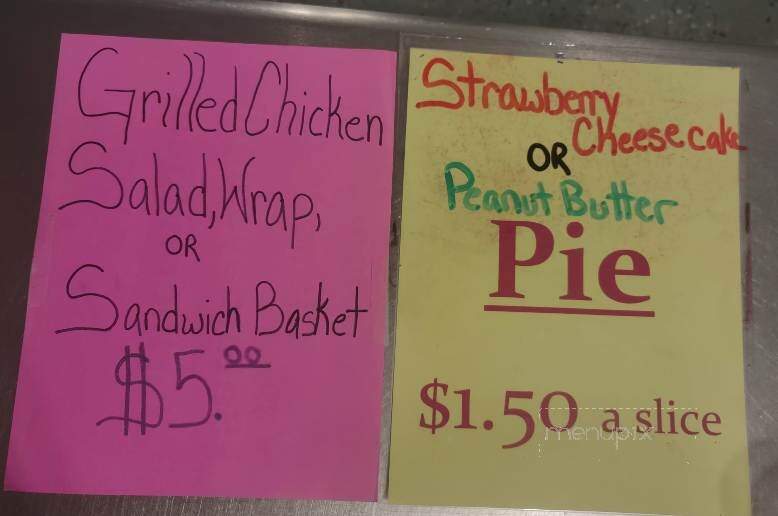 Grilled Chicken
Salad, Wrap,
OR
Sandwich Basket
$5.00
Strawberry
Cheesecake
OR
Peanut Butter
Pie
$1.50 a slice
menupix